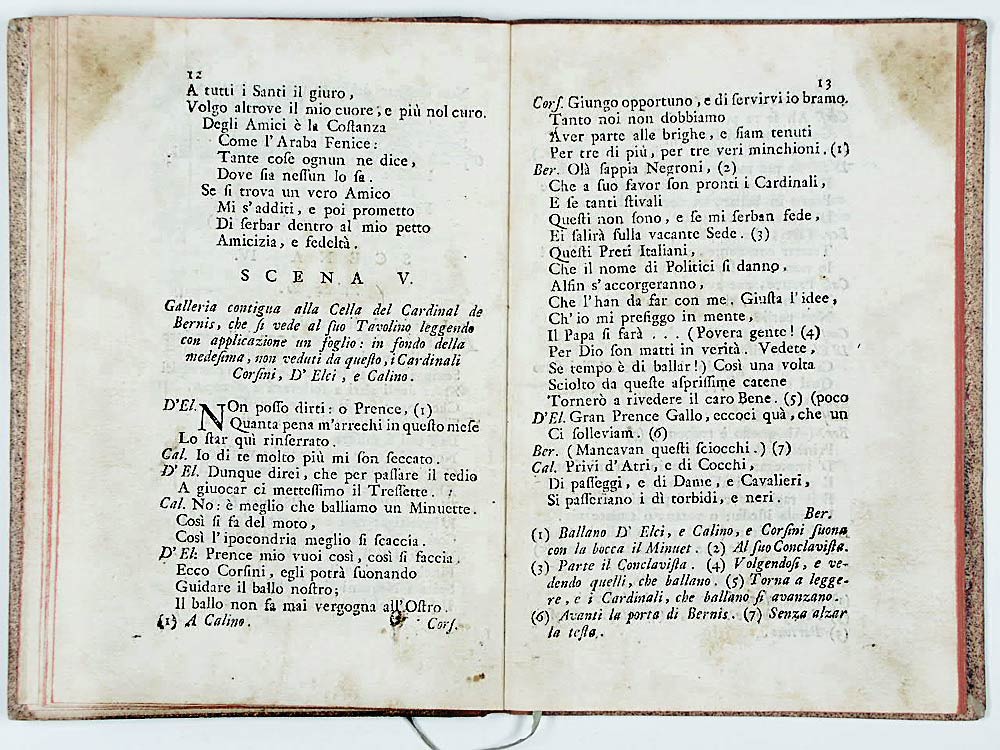 12
A tutti i Santi il giuro,
Volgo altrove il mio cuore, e più nol curo.
Degli Amici è la Coſtanza
Come l'Araba Fenice:
Tante coſe ognun ne dice,
Dove ſia neſſun lo ſa.
Se ſi trova un vero Amico
Mi s'additi, e poi prometto
Di ſerbar dentro al mio petto
Amicizia, e fedeltà.
SCENA V.
Galleria contigua alla Cella del Cardinal de
Bernis, che ſi vede al ſuo Tavolino leggendo
con applicazione un foglio: in fondo della
medeſima, non veduti da queſto, i Cardinali
Corſini, D'Elci, e Calino.
D'El. NOn poſſo dirti: o Prence, (1)
Quanta pena m'arrechi in queſto meſe
Lo ſtar quì rinſerrato.
Cal. Io di te molto più mi ſon ſeccato.
D'El. Dunque direi, che per paſſare il tedio
A giuocar ci metteſſimo il Treſſette.
Cal. No: è meglio che balliamo un Minuette.
Così ſi fa del moto,
Così l'ipocondria meglio ſi ſcaccia.
D'El. Prence mio vuoi così, così ſi faccia.
Ecco Corſini, egli potrà ſuonando
Guidare il ballo noſtro;
Il ballo non fa mai vergogna all'Oſtro.
(1) A Calino.
Corſ.
13
Corſ. Giungo opportuno, e di ſervirvi io bramo.
Tanto noi non dobbiamo
Aver parte alle brighe, e ſiam tenuti
Per tre di più, per tre veri minchioni. (1)
Ber. Olà ſappia Negroni, (2)
Che a ſuo favor ſon pronti i Cardinali,
E ſe tanti ſtivali
Queſti non ſono, e ſe mi ſerban fede,
Ei ſalirà ſulla vacante Sede. (3)
Queſti Preti Italiani,
Che il nome di Politici ſi danno,
Alfin s'accorgeranno,
Che l'han da far con me. Giuſta l'idee,
Ch'io mi prefiggo in mente,
Il Papa ſi farà . . . (Povera gente! (4)
Per Dio ſon matti in verità. Vedete,
Se tempo è di ballar!) Così una volta
Sciolto da queſte aſpriſſime catene
Tornerò a rivedere il caro Bene. (5) (poco
D'El. Gran Prence Gallo, eccoci quà, che un
Ci ſolleviam. (6)
Ber. (Mancavan queſti ſciocchi.) (7)
Cal. Privi d'Atri, e di Cocchi,
Di paſſeggi, e di Dame, e Cavalieri,
Si paſſeriano i dì torbidi, e neri.
Ber.
(1) Ballano D'Elci, e Calino, e Corſini ſuona
con la bocca il Minuet. (2) Al ſuo Conclaviſta.
(3) Parte il Conclaviſta. (4) Volgendoſi, e ve-
dendo quelli, che ballano. (5) Torna a legge-
re, e i Cardinali, che ballano ſi avanzano.
(6) Avanti la porta di Bernis. (7) Senza alzar
la teſta.